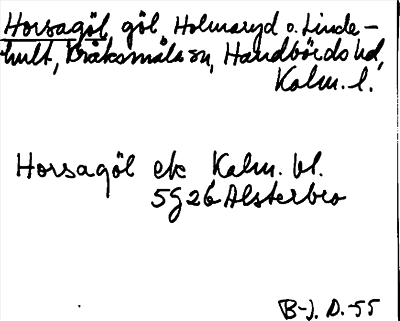 Horsagöl, göl, Holmaryd o. Linde-
hult, Kråksmåla sn, Handbörds hd,
Kalm. l.
Horsagöl ek Kalm. bl.
5g 26 Alsterbro
B-J. D. -55